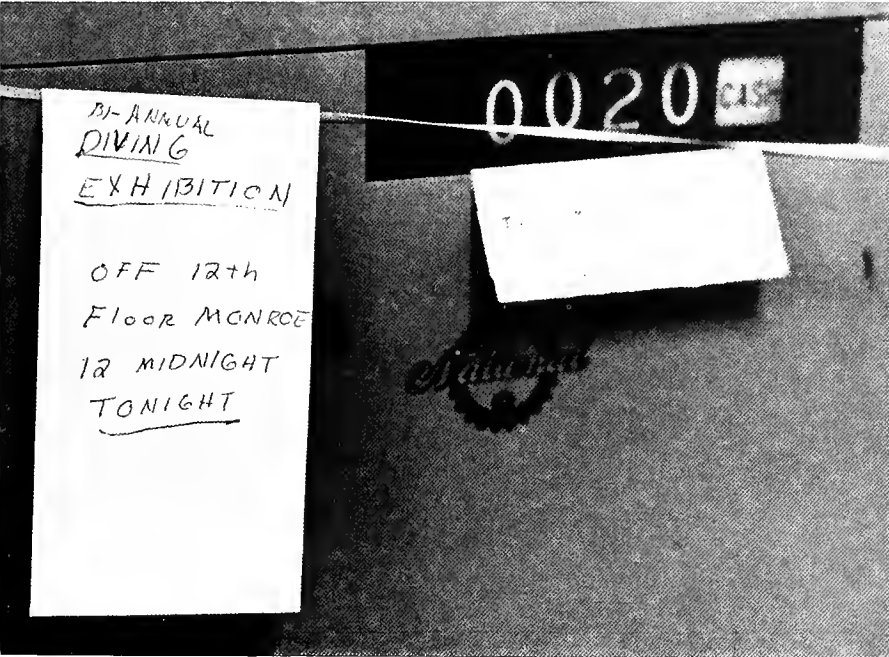 BI-ANNUAL
DIVING
EXHIBITION
OFF 12th
Floor MONROE
12 MIDNIGHT
TONIGHT
0020 CASH
National